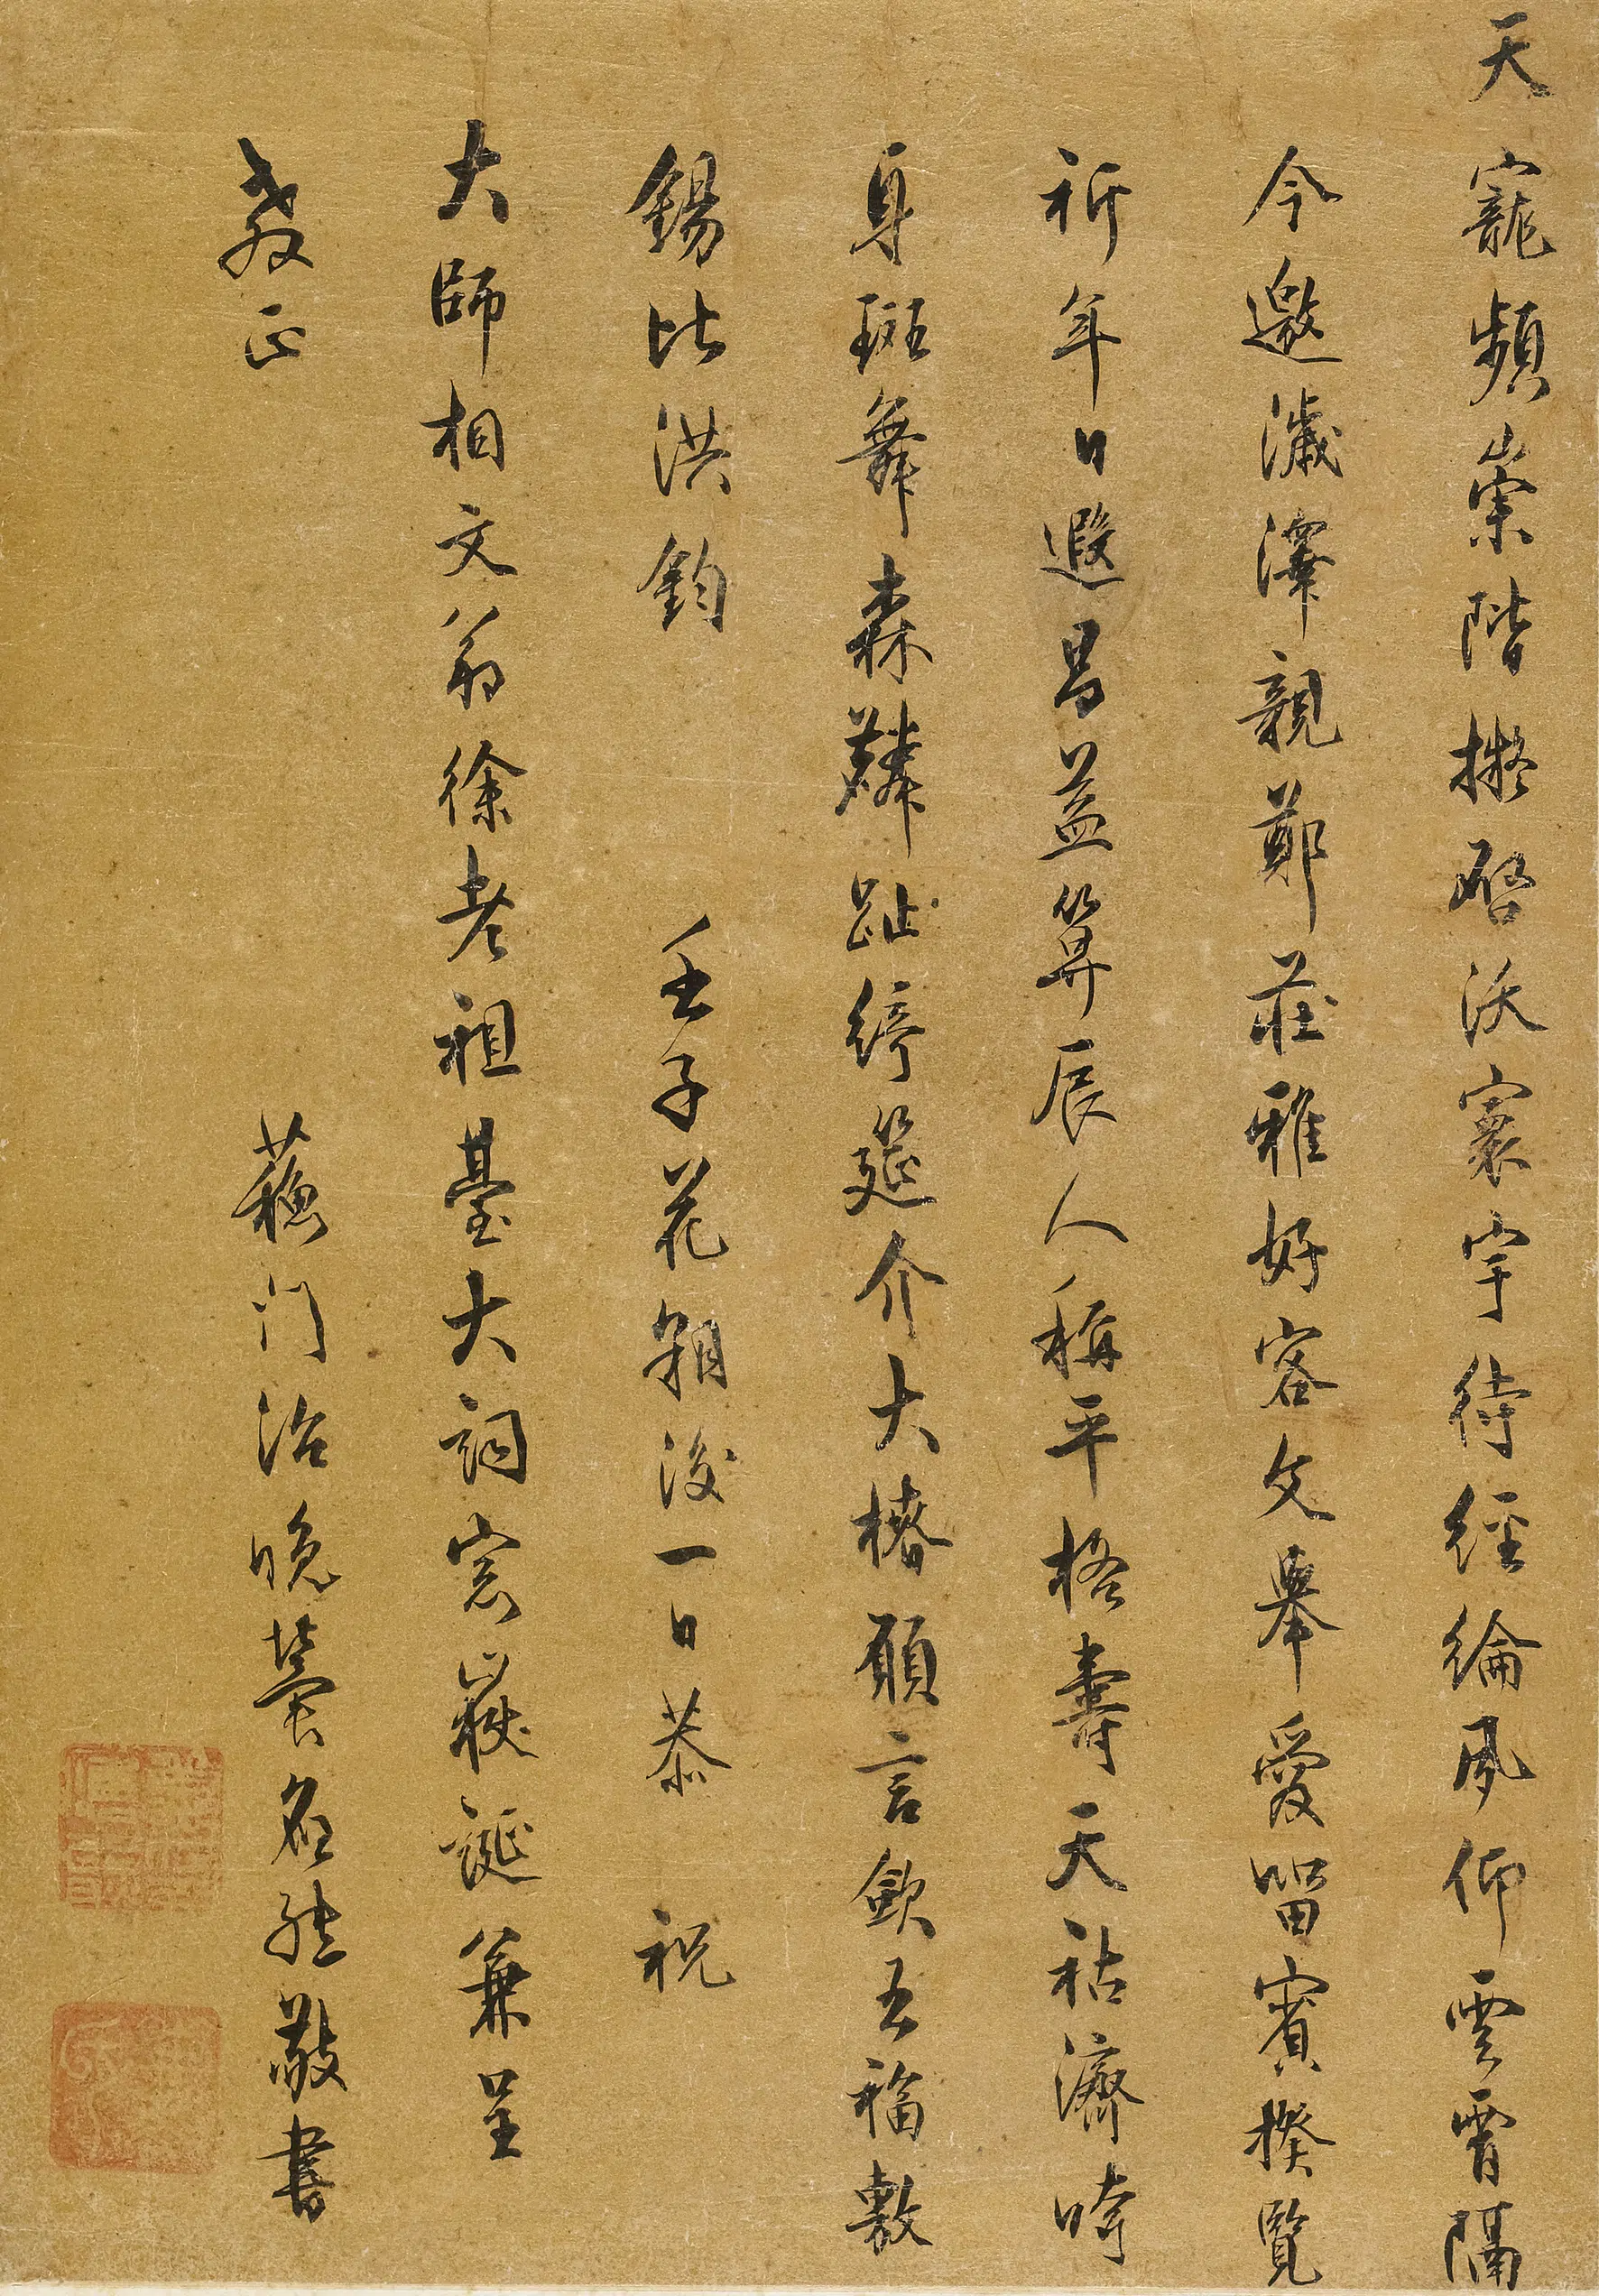 天寵頻崇階擬啓沃寰宇待經綸夙仰雲霄隔
今邀濊澤親鄭莊雅好客文舉愛留賓揆覽
祈年日遐昌益算辰人稱平格壽天祜濟時
身斑舞森麟趾綺筵介大椿願言歛五福敷
錫比洪鈞 壬子花朝後一日恭 祝
大師相文翁徐老祖臺大詞宗嶽誕兼呈
教正
蘇門治晚薛所然敬書